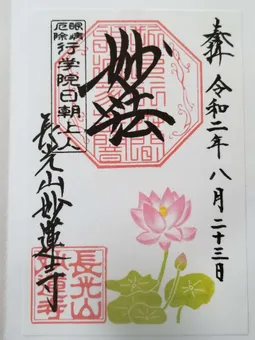 奉拝 令和二年 八月二十三日
妙法
眼病
厄除
行学院日朝上人
長光山妙蓮寺
長光山
妙蓮寺